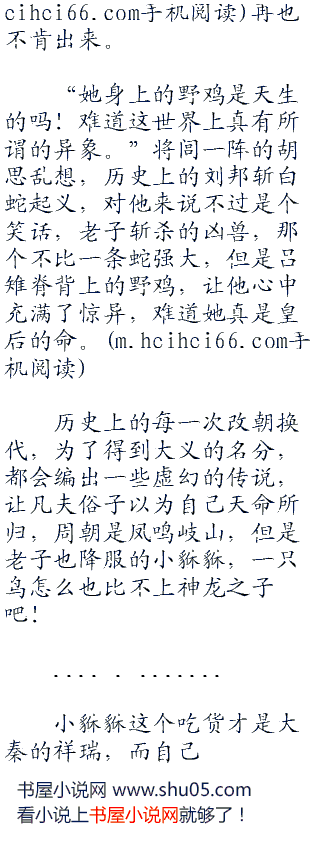 cihci66.com手机阅读)再也
不肯出来。
“她身上的野鸡是天生
的吗！难道这世界上真有所
谓的异象。”将闾一阵的胡
思乱想，历史上的刘邦斩白
蛇起义，对他来说不过是个
笑话，老子斩杀的凶兽，那
个不比一条蛇强大，但是吕
雉脊背上的野鸡，让他心中
充满了惊异，难道她真是皇
后的命。(m.hcihci66.com手
机阅读)
历史上的每一次改朝换
代，为了得到大义的名分，
都会编出一些虚幻的传说，
让凡夫俗子以为自己天命所
归，周朝是凤鸣岐山，但是
老子也降服的小貅貅，一只
鸟怎么也比不上神龙之子
吧！
.... . .......
小貅貅这个吃货才是大
秦的祥瑞，而自己
书屋小说网 www.shu05.com
看小说上书屋小说网就够了！